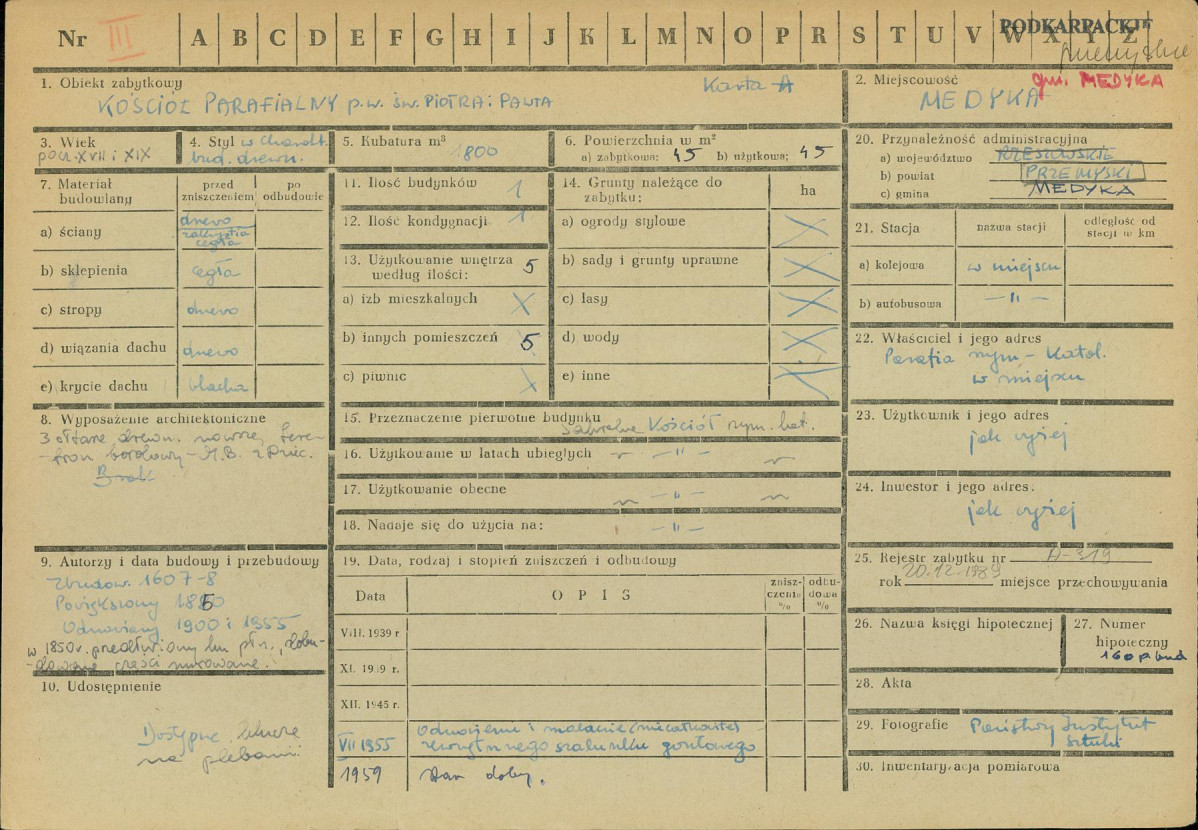 Nr III A B C D E F G H I J K L M N O P R S T U V W X Y Z
PODKARPACKIE
1. Obiekt zabytkowy
Karta A
KOŚCIÓŁ PARAFIALNY p.w. św. PIOTRA i PAWŁA
2. Miejscowość
gm. MEDYKA
MEDYKA
3. Wiek
pocz. XVII i XIX
4. Styl w charakt.
bud. drewn.
5. Kubatura m³
1800
6. Powierzchnia w m²
a) zabytkowa: 45 b) użytkowa: 45
20. Przynależność administracyjna
a) województwo RZESZOWSKIE
b) powiat PRZEMYSKI
c) gmina MEDYKA
7. Materiał budowlany
przed zniszczeniem
po odbudowie
a) ściany
drewo
zakrystia
cegła
b) sklepienia cegła
c) stropy drewo
d) wiązania dachu drewo
e) krycie dachu blacha
11. Ilość budynków 1
12. Ilość kondygnacji 1
13. Użytkowanie wnętrza według ilości: 5
a) izb mieszkalnych X
b) innych pomieszczeń 5
c) piwnic X
14. Grunty należące do zabytku:
ha
a) ogrody stylowe X
b) sady i grunty uprawne X
c) lasy X
d) wody X
e) inne X
21. Stacja
nazwa stacji
odległość od stacji w km
a) kolejowa w miejscu
b) autobusowa — " —
22. Właściciel i jego adres
Parafia rzym- Katol.
w miejscu
8. Wyposażenie architektoniczne
3 ołtarze drewn. nowsze, fere-
-tron barokowy - M.B. z Dziec.
Brak
15. Przeznaczenie pierwotne budynku
Sakralne Kościół rzym. kat.
16. Użytkowanie w latach ubiegłych — " —
17. Użytkowanie obecne — " —
18. Nadaje się do użycia na: — " —
23. Użytkownik i jego adres
jak wyżej
24. Inwestor i jego adres:
jak wyżej
9. Autorzy i data budowy i przebudowy
Zbudow. 1607-8
Powiększony 1850
Odnowiony 1900 i 1955
w 1850r. przedłużony ku płn., dobu-
-dowane części murowane.
19. Data, rodzaj i stopień zniszczeń i odbudowy
Data
OPIS
zniszczenia %
odbudowa %
VIII. 1939 r.
XI. 1939 r.
XII. 1945 r.
VII 1955
Odnowienie i malowanie
zewnętrznego szalunku gontowego
1959 stan dobry.
25. Rejestr zabytku nr A-319
rok 20.12.1989 miejsce przechowywania
26. Nazwa księgi hipotecznej
27. Numer hipoteczny
160 p bud
10. Udostępnienie
Dostępne, klucze
na plebanii
28. Akta
29. Fotografie Państwowy Instytut
Sztuki
30. Inwentaryzacja pomiarowa